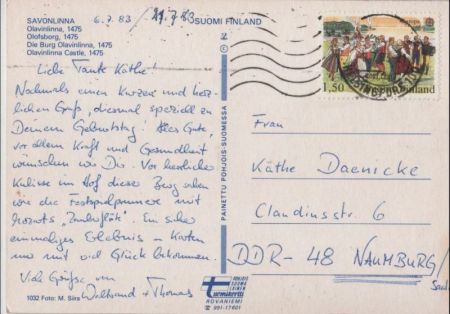 SAVONLINNA 6.7.83 / 11.7.83 SUOMI FINLAND
Olavinlinna, 1475
Olofsborg, 1475
Die Burg Olavinlinna, 1475
Olavinlinna Castle, 1475
Liebe Tante Käthe!
Nochmals einen kurzen und herz-
lichen Gruß, diesmal speziell zu
Deinem Geburtstag! Alles Gute,
vor allem Kraft und Gesundheit
wünschen wir Dir. Vor herrlicher
Kulisse im Hof dieser Burg sahen
wir die Festspielpremiere mit
Mozarts "Zauberflöte". Ein sicher
einmaliges Erlebnis – Karten
nur mit viel Glück bekommen.
Viele Grüße von
Waltraud + Thomas
1032 Foto: M. Siira
PAINETTU POHJOIS-SUOMESSA
POHJOIS
SUOMA
LAINEN
turmikortti
ROVANIEMI
991-17601
1,50 Finland
Frau
Käthe Daenicke
Claudiusstr 6
DDR-48 NAUMBURG/
Saale